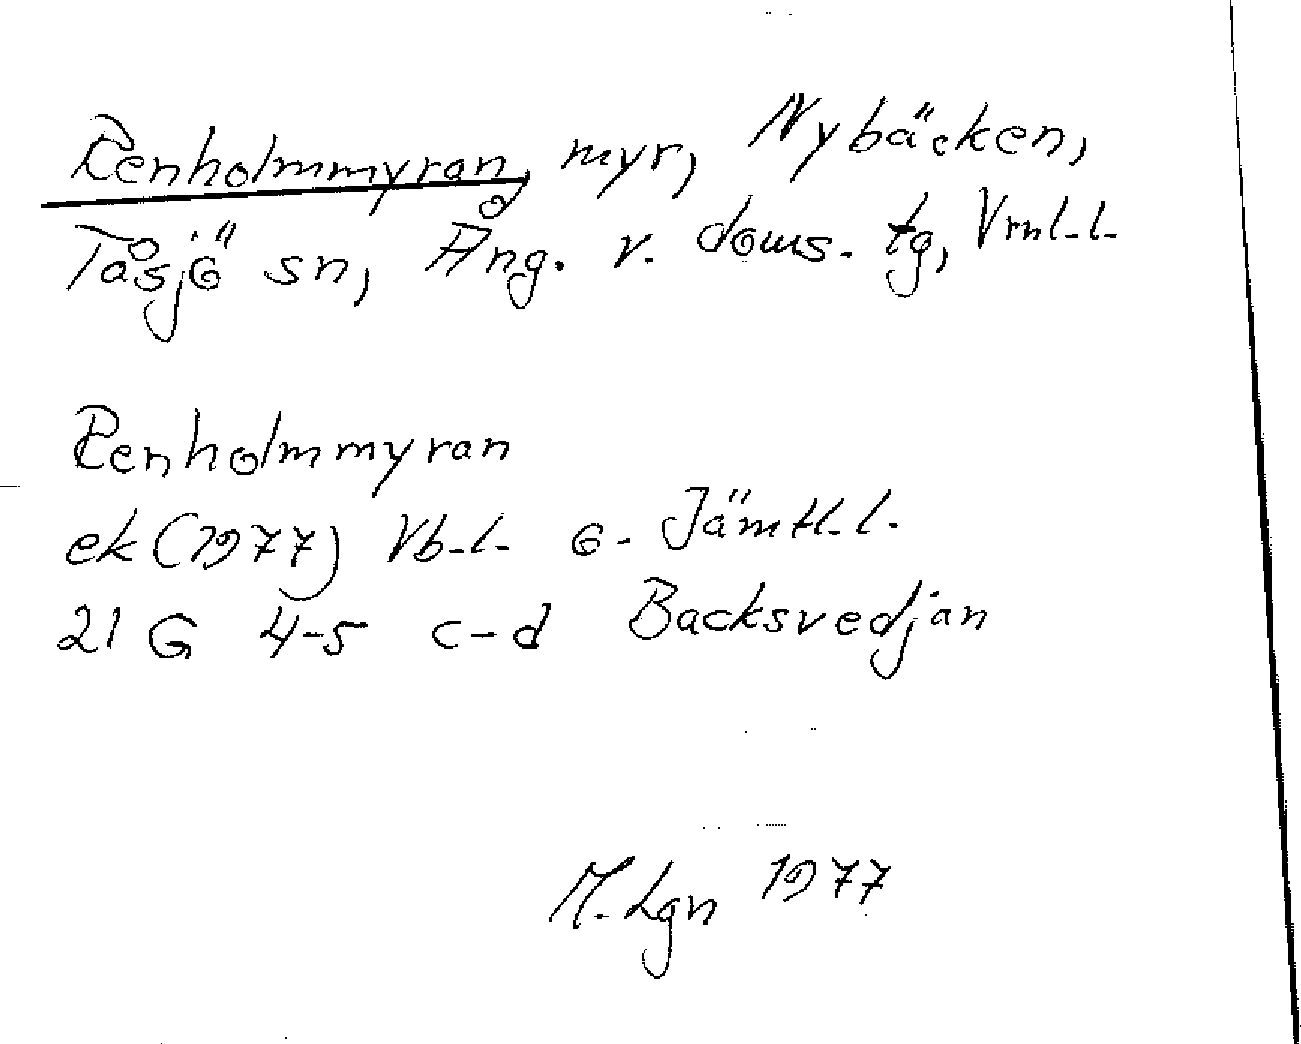 Renholmmyran, myr, Nybäcken,
Tåsjö sn, Ång. v. doms. tg, Vrnl.l.
Renholmmyran
ek (1977) Vb.l. o. Jämtl.l.
21 G 4-5 c-d Backsvedjan
M. Lgn 1977